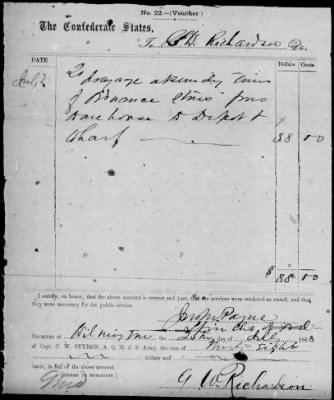 No. 22.—(Voucher)
The Confederate States,
To G W. Richardson Dr.
DATE
Dollars Cents
July
To drayage at sundry times
of Ordnance Stores from
Warehouse to Depot &
Wharf
88 00
$ 88 00
I certify, on honor, that the above account is correct and just; that the services were rendered as stated, and that
they were necessary for the public service.
Jno M Payne
RECEIVED at Wilmington day of July 1863
of Capt. C. W. STYRON, A. Q. M. C. S. Army, the sum of Eighty
dollars and cents,
in full of the above account.
(SIGNED IN DUPLICATE.)
G W Richardson